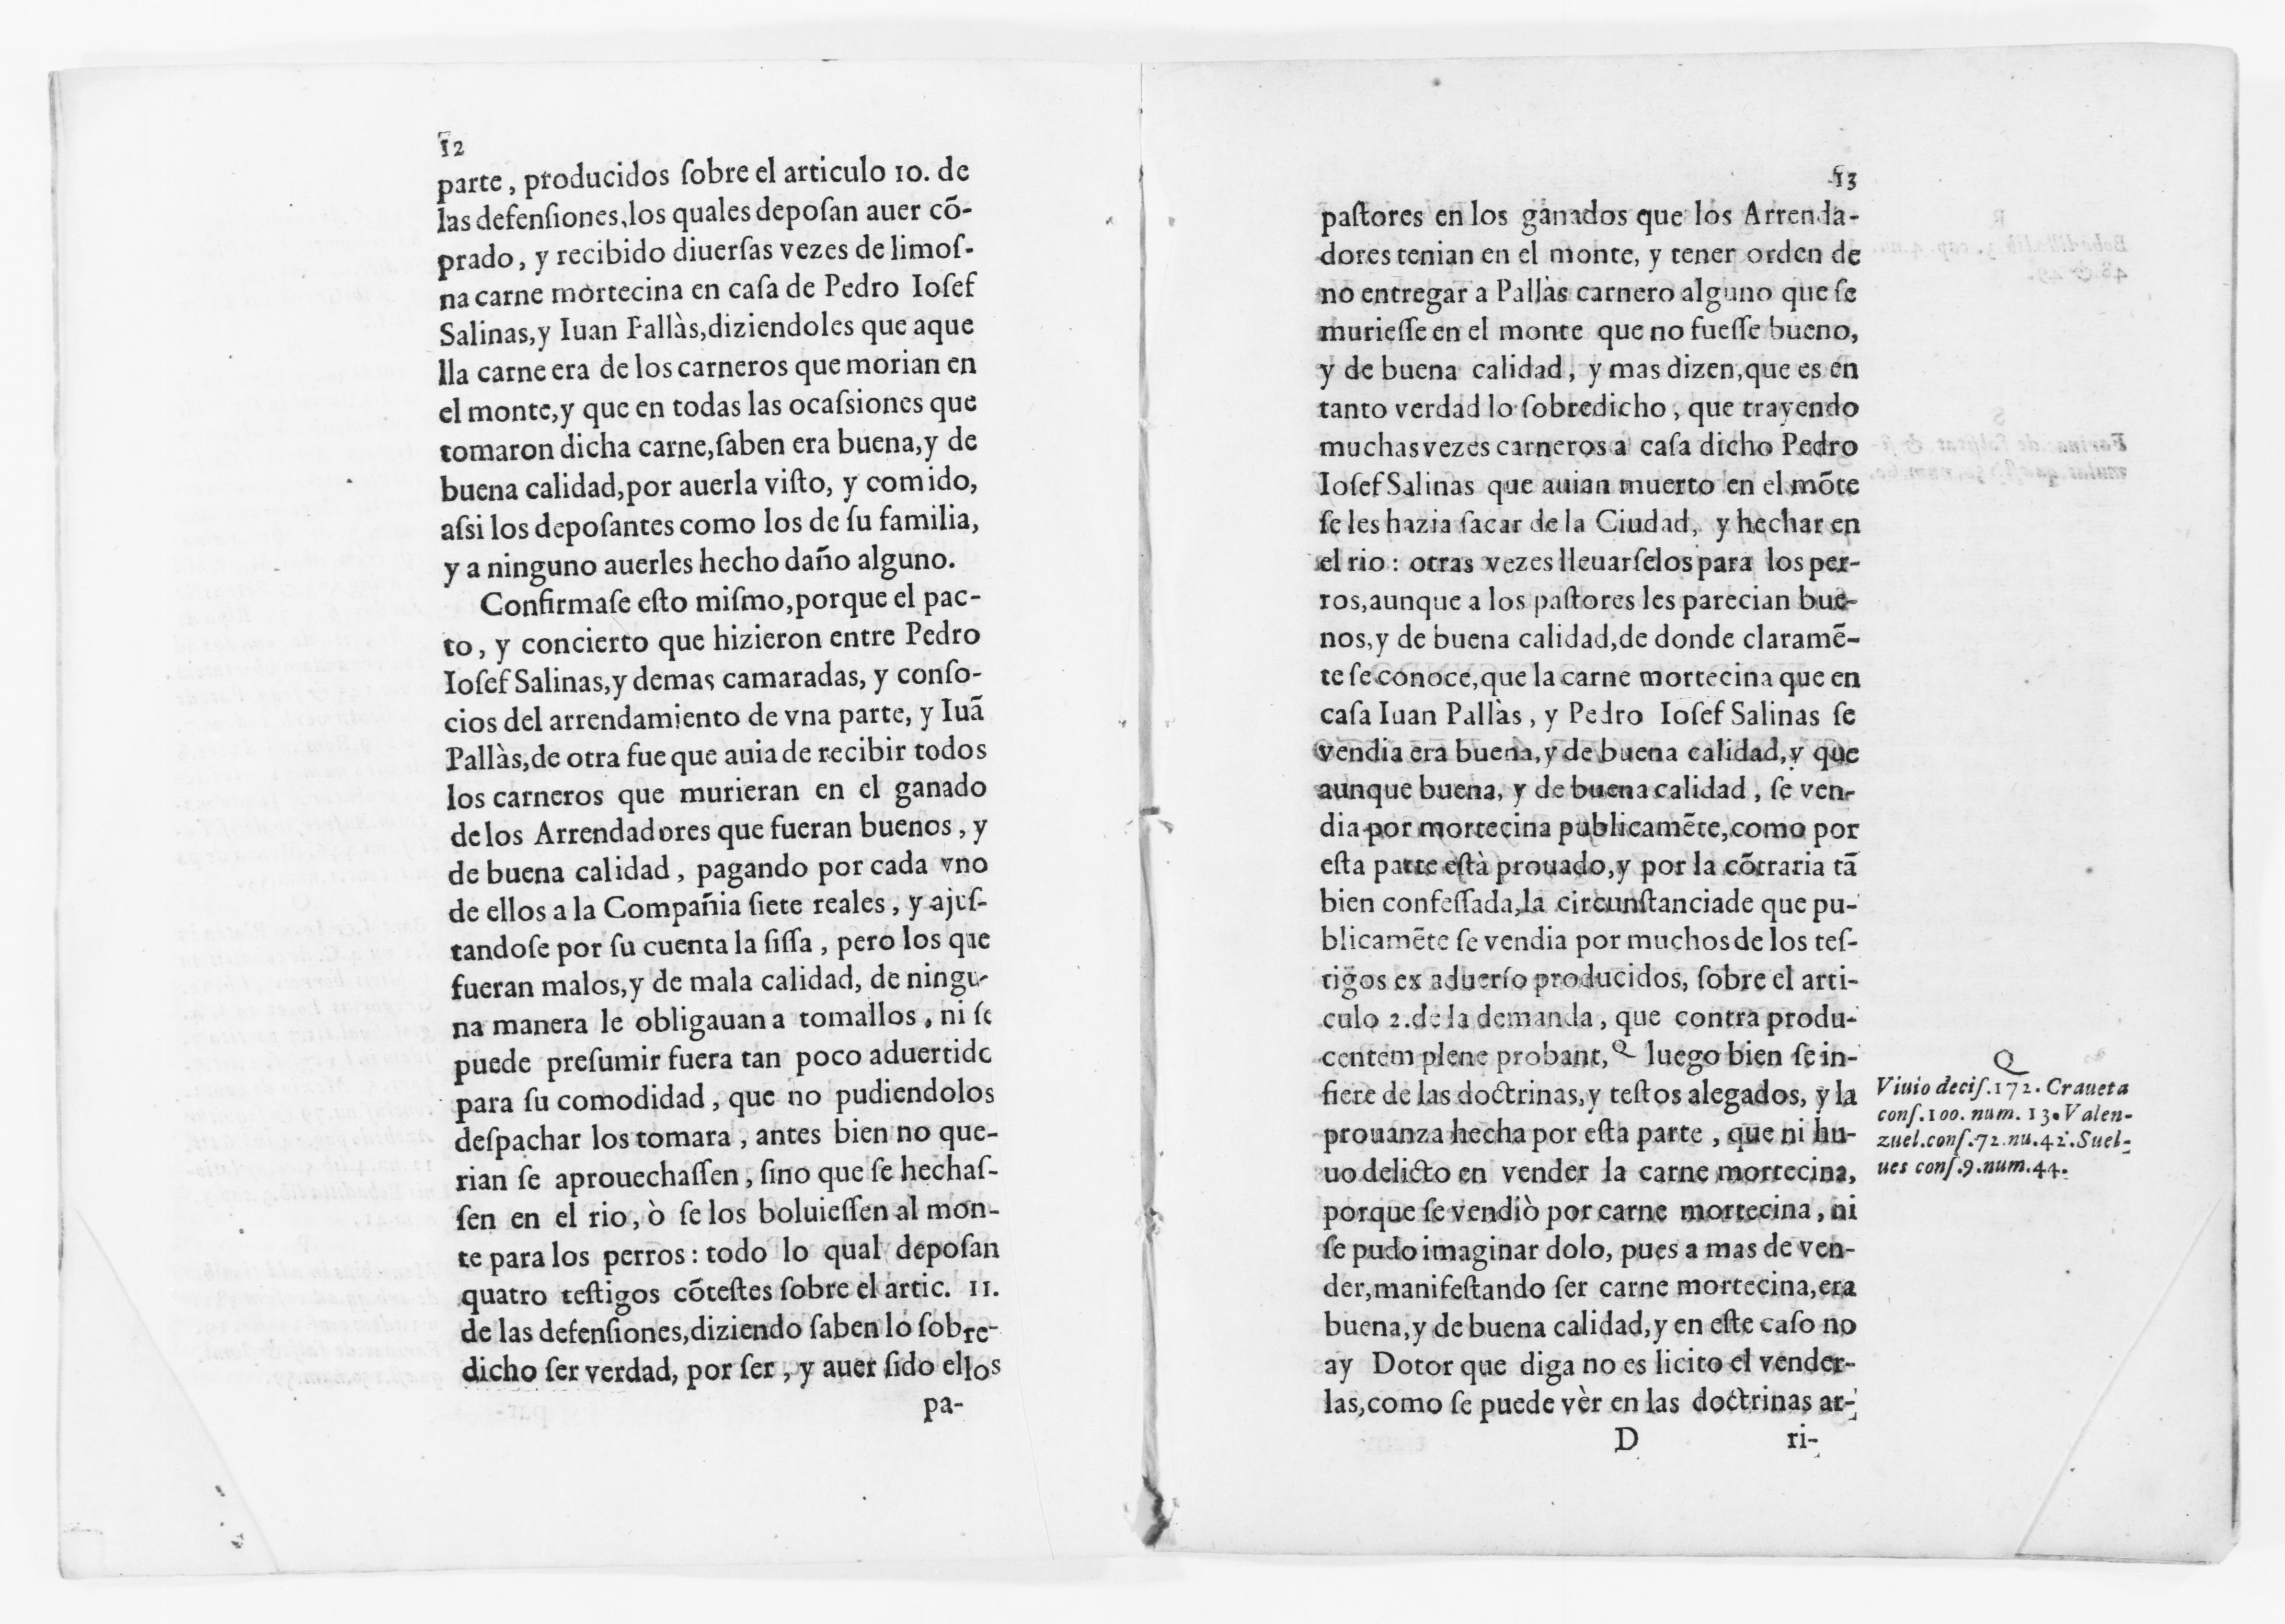 12
parte, producidos ſobre el articulo 10. de
las defenſiones, los quales depoſan auer cõ-
prado, y recibido diuerſas vezes de limoſ-
na carne mortecina en caſa de Pedro Ioſef
Salinas, y Iuan Fallàs, diziendoles que aque
lla carne era de los carneros que morian en
el monte, y que en todas las ocaſsiones que
tomaron dicha carne, ſaben era buena, y de
buena calidad, por auerla viſto, y comido,
aſsi los depoſantes como los de ſu familia,
y a ninguno auerles hecho daño alguno.
Confirmaſe eſto miſmo, porque el pac-
to, y concierto que hizieron entre Pedro
Ioſef Salinas, y demas camaradas, y conſo-
cios del arrendamiento de vna parte, y Iuã
Pallàs, de otra fue que auia de recibir todos
los carneros que murieran en el ganado
de los Arrendadores que fueran buenos, y
de buena calidad, pagando por cada vno
de ellos a la Compañia ſiete reales, y ajuſ-
tandoſe por ſu cuenta la ſiſſa, pero los que
fueran malos, y de mala calidad, de ningu-
na manera le obligauan a tomallos, ni ſe
puede preſumir fuera tan poco aduertido
para ſu comodidad, que no pudiendolos
deſpachar los tomara, antes bien no que-
rian ſe aprouechaſſen, ſino que ſe hechaſ-
ſen en el rio, ò ſe los boluieſſen al mon-
te para los perros: todo lo qual depoſan
quatro teſtigos cõteſtes ſobre el artic. 11.
de las defenſiones, diziendo ſaben lo ſobre-
dicho ſer verdad, por ſer, y auer ſido ellos
pa-
13
paſtores en los ganados que los Arrenda-
dores tenian en el monte, y tener orden de
no entregar a Pallàs carnero alguno que ſe
murieſſe en el monte que no fueſſe bueno,
y de buena calidad, y mas dizen, que es en
tanto verdad lo ſobredicho, que trayendo
muchas vezes carneros a caſa dicho Pedro
Ioſef Salinas que auian muerto en el mõte
ſe les hazia ſacar de la Ciudad, y hechar en
el rio: otras vezes lleuarſelos para los per-
ros, aunque a los paſtores les parecian bue-
nos, y de buena calidad, de donde claramẽ-
te ſe conoce, que la carne mortecina que en
caſa Iuan Pallàs, y Pedro Ioſef Salinas ſe
vendia era buena, y de buena calidad, y que
aunque buena, y de buena calidad, ſe ven-
dia por mortecina publicamẽte, como por
eſta parte eſtà prouado, y por la cõtraria tã
bien confeſſada, la circunſtancia de que pu-
blicamẽte ſe vendia por muchos de los teſ-
tigos ex aduerſo producidos, ſobre el arti-
culo 2. de la demanda, que contra produ-
centem plene probant, Q luego bien ſe in-
fiere de las doctrinas, y teſtos alegados, y la
prouanza hecha por eſta parte, que ni hu-
uo delicto en vender la carne mortecina,
porque ſe vendiò por carne mortecina, ni
ſe pudo imaginar dolo, pues a mas de ven-
der, manifeſtando ſer carne mortecina, era
buena, y de buena calidad, y en eſte caſo no
ay Dotor que diga no es licito el vender-
las, como ſe puede vèr en las doctrinas ar-
D ri-
Q
Viuio deciſ. 172. Craueta
conſ. 100. num. 13. Valen-
zuel. conſ. 72. nu. 42. Suel-
ues conſ. 9. num. 44.